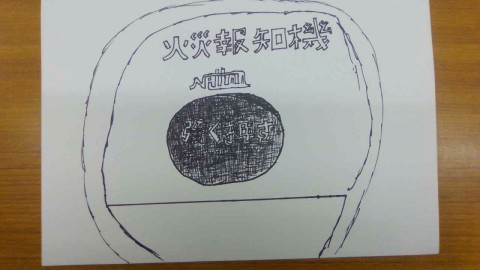 火災報知機
強く押す